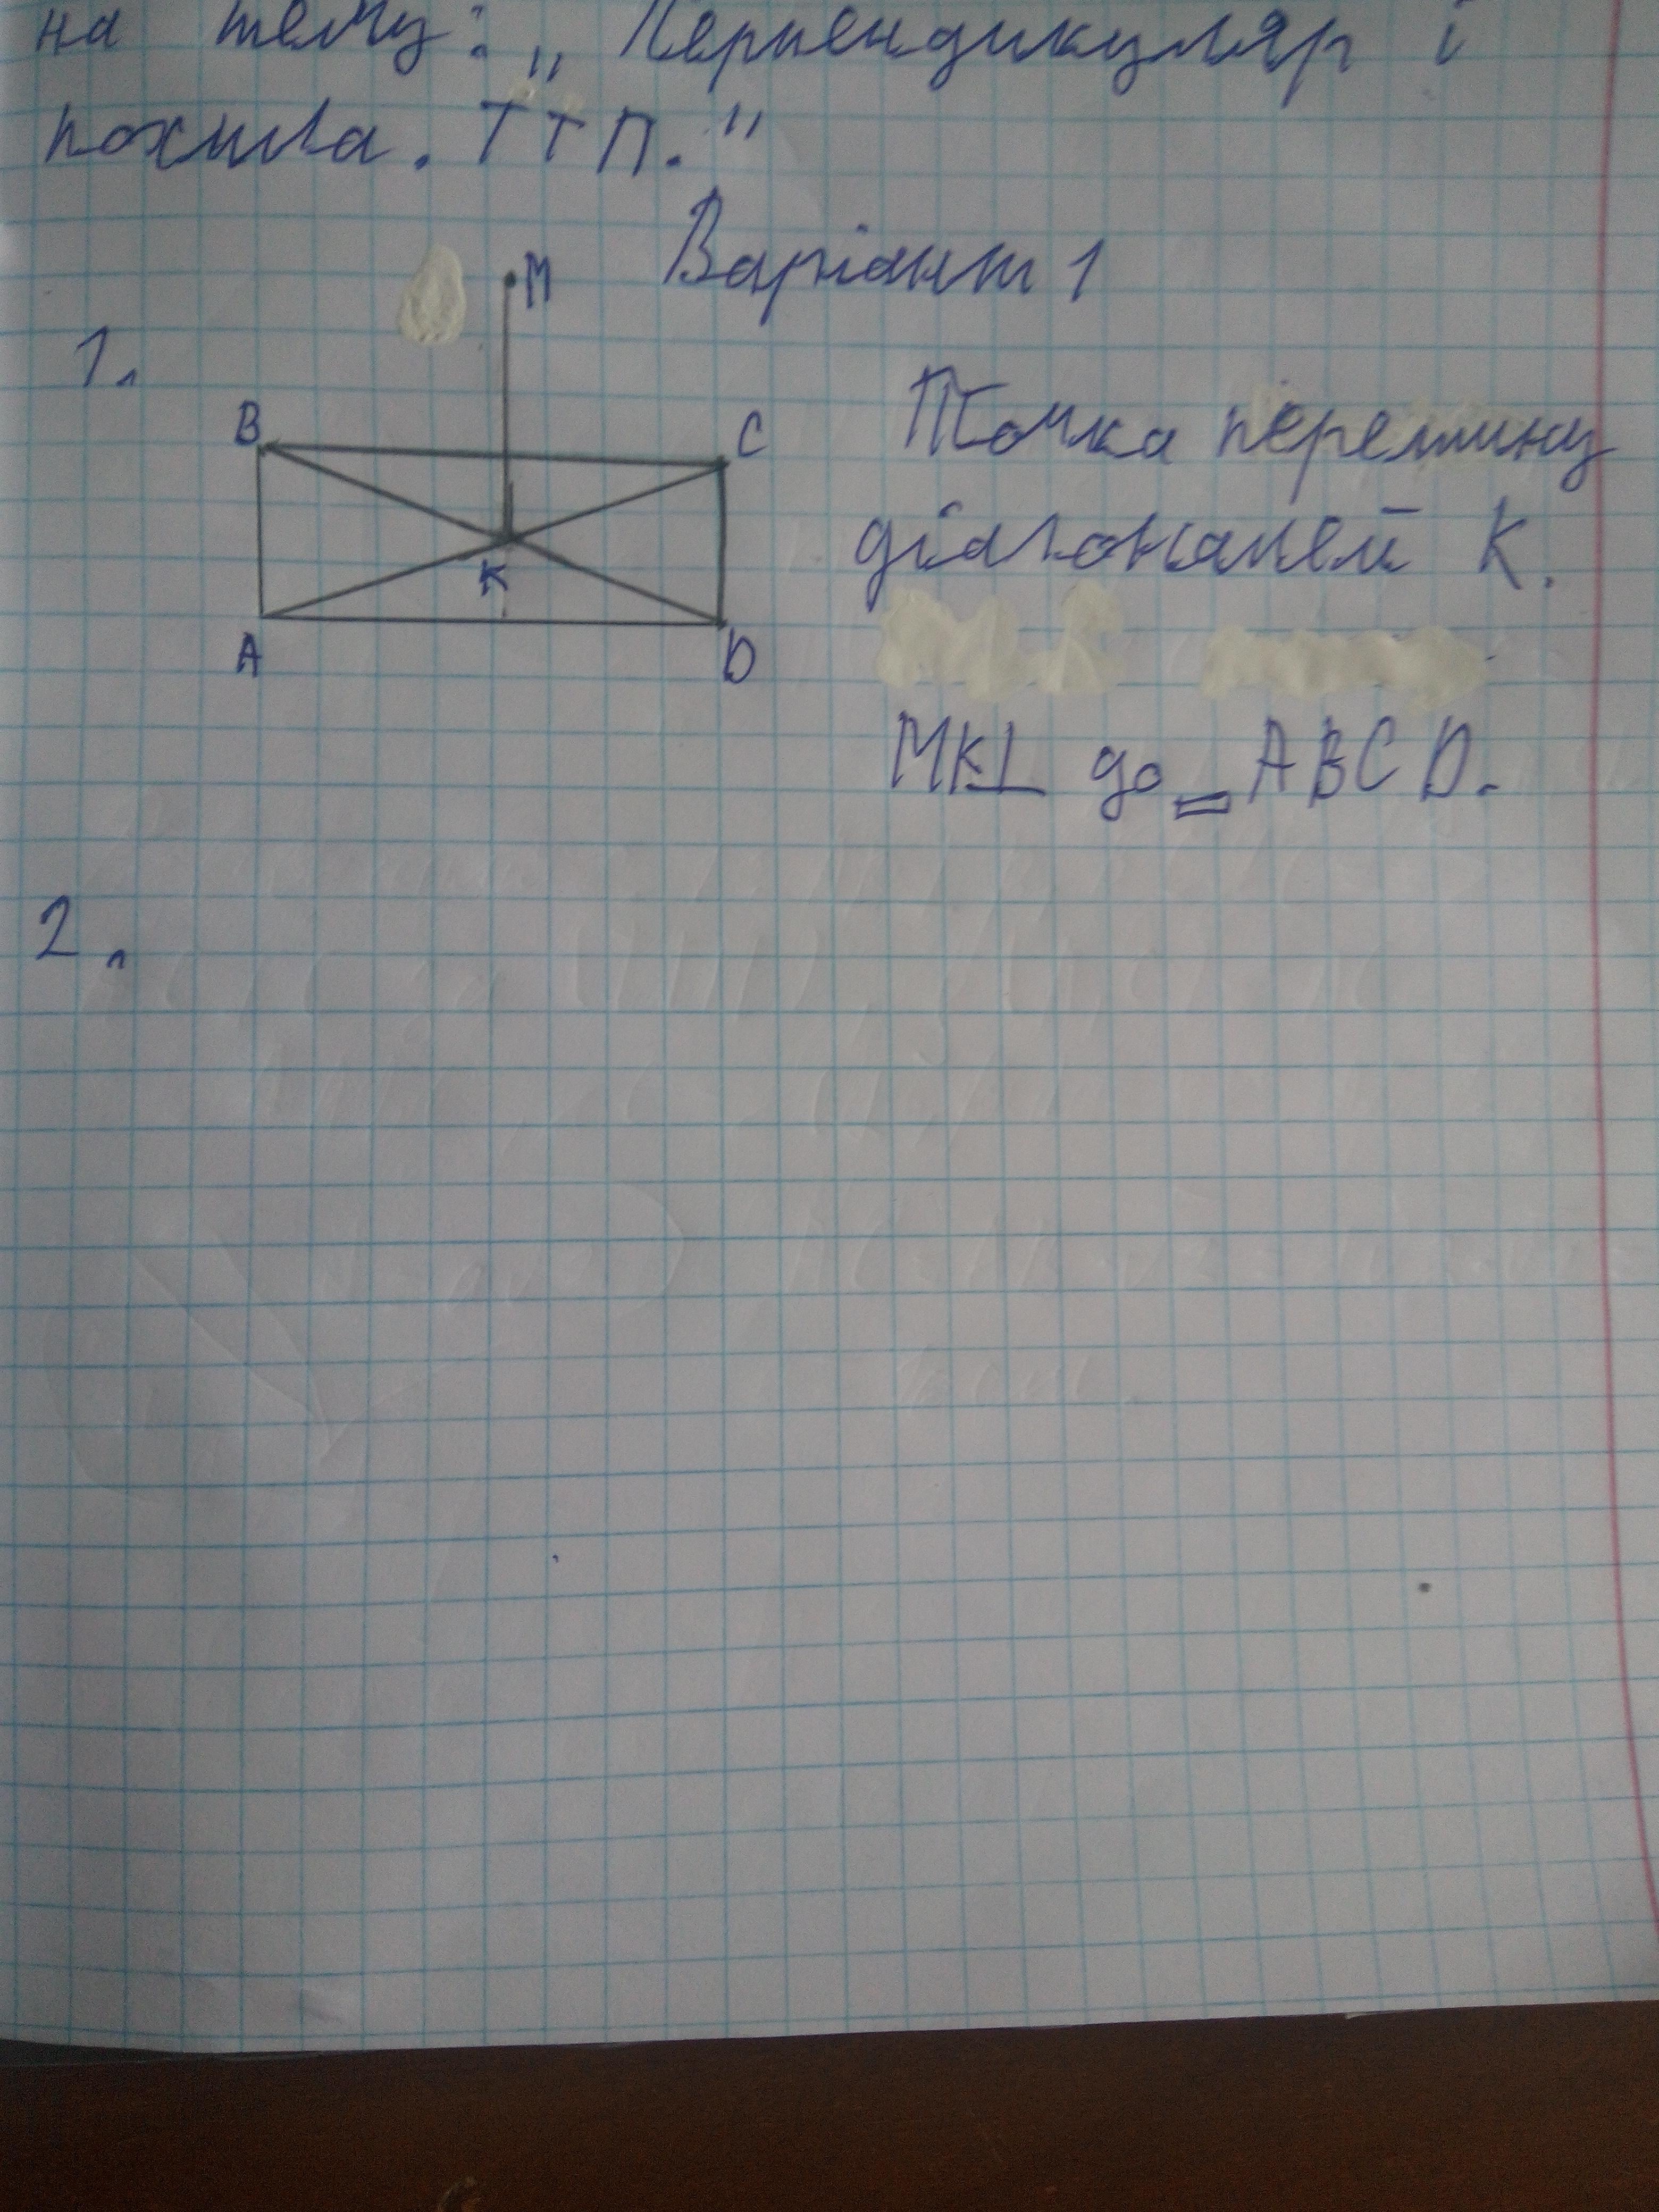 на тему: „ Перпендикуляр і
похила. ТТП."
Варіант 1
M
1.
B
C
Точка перетину
діагоналей K.
K
A
D
MK⊥ до = ABCD.
2.